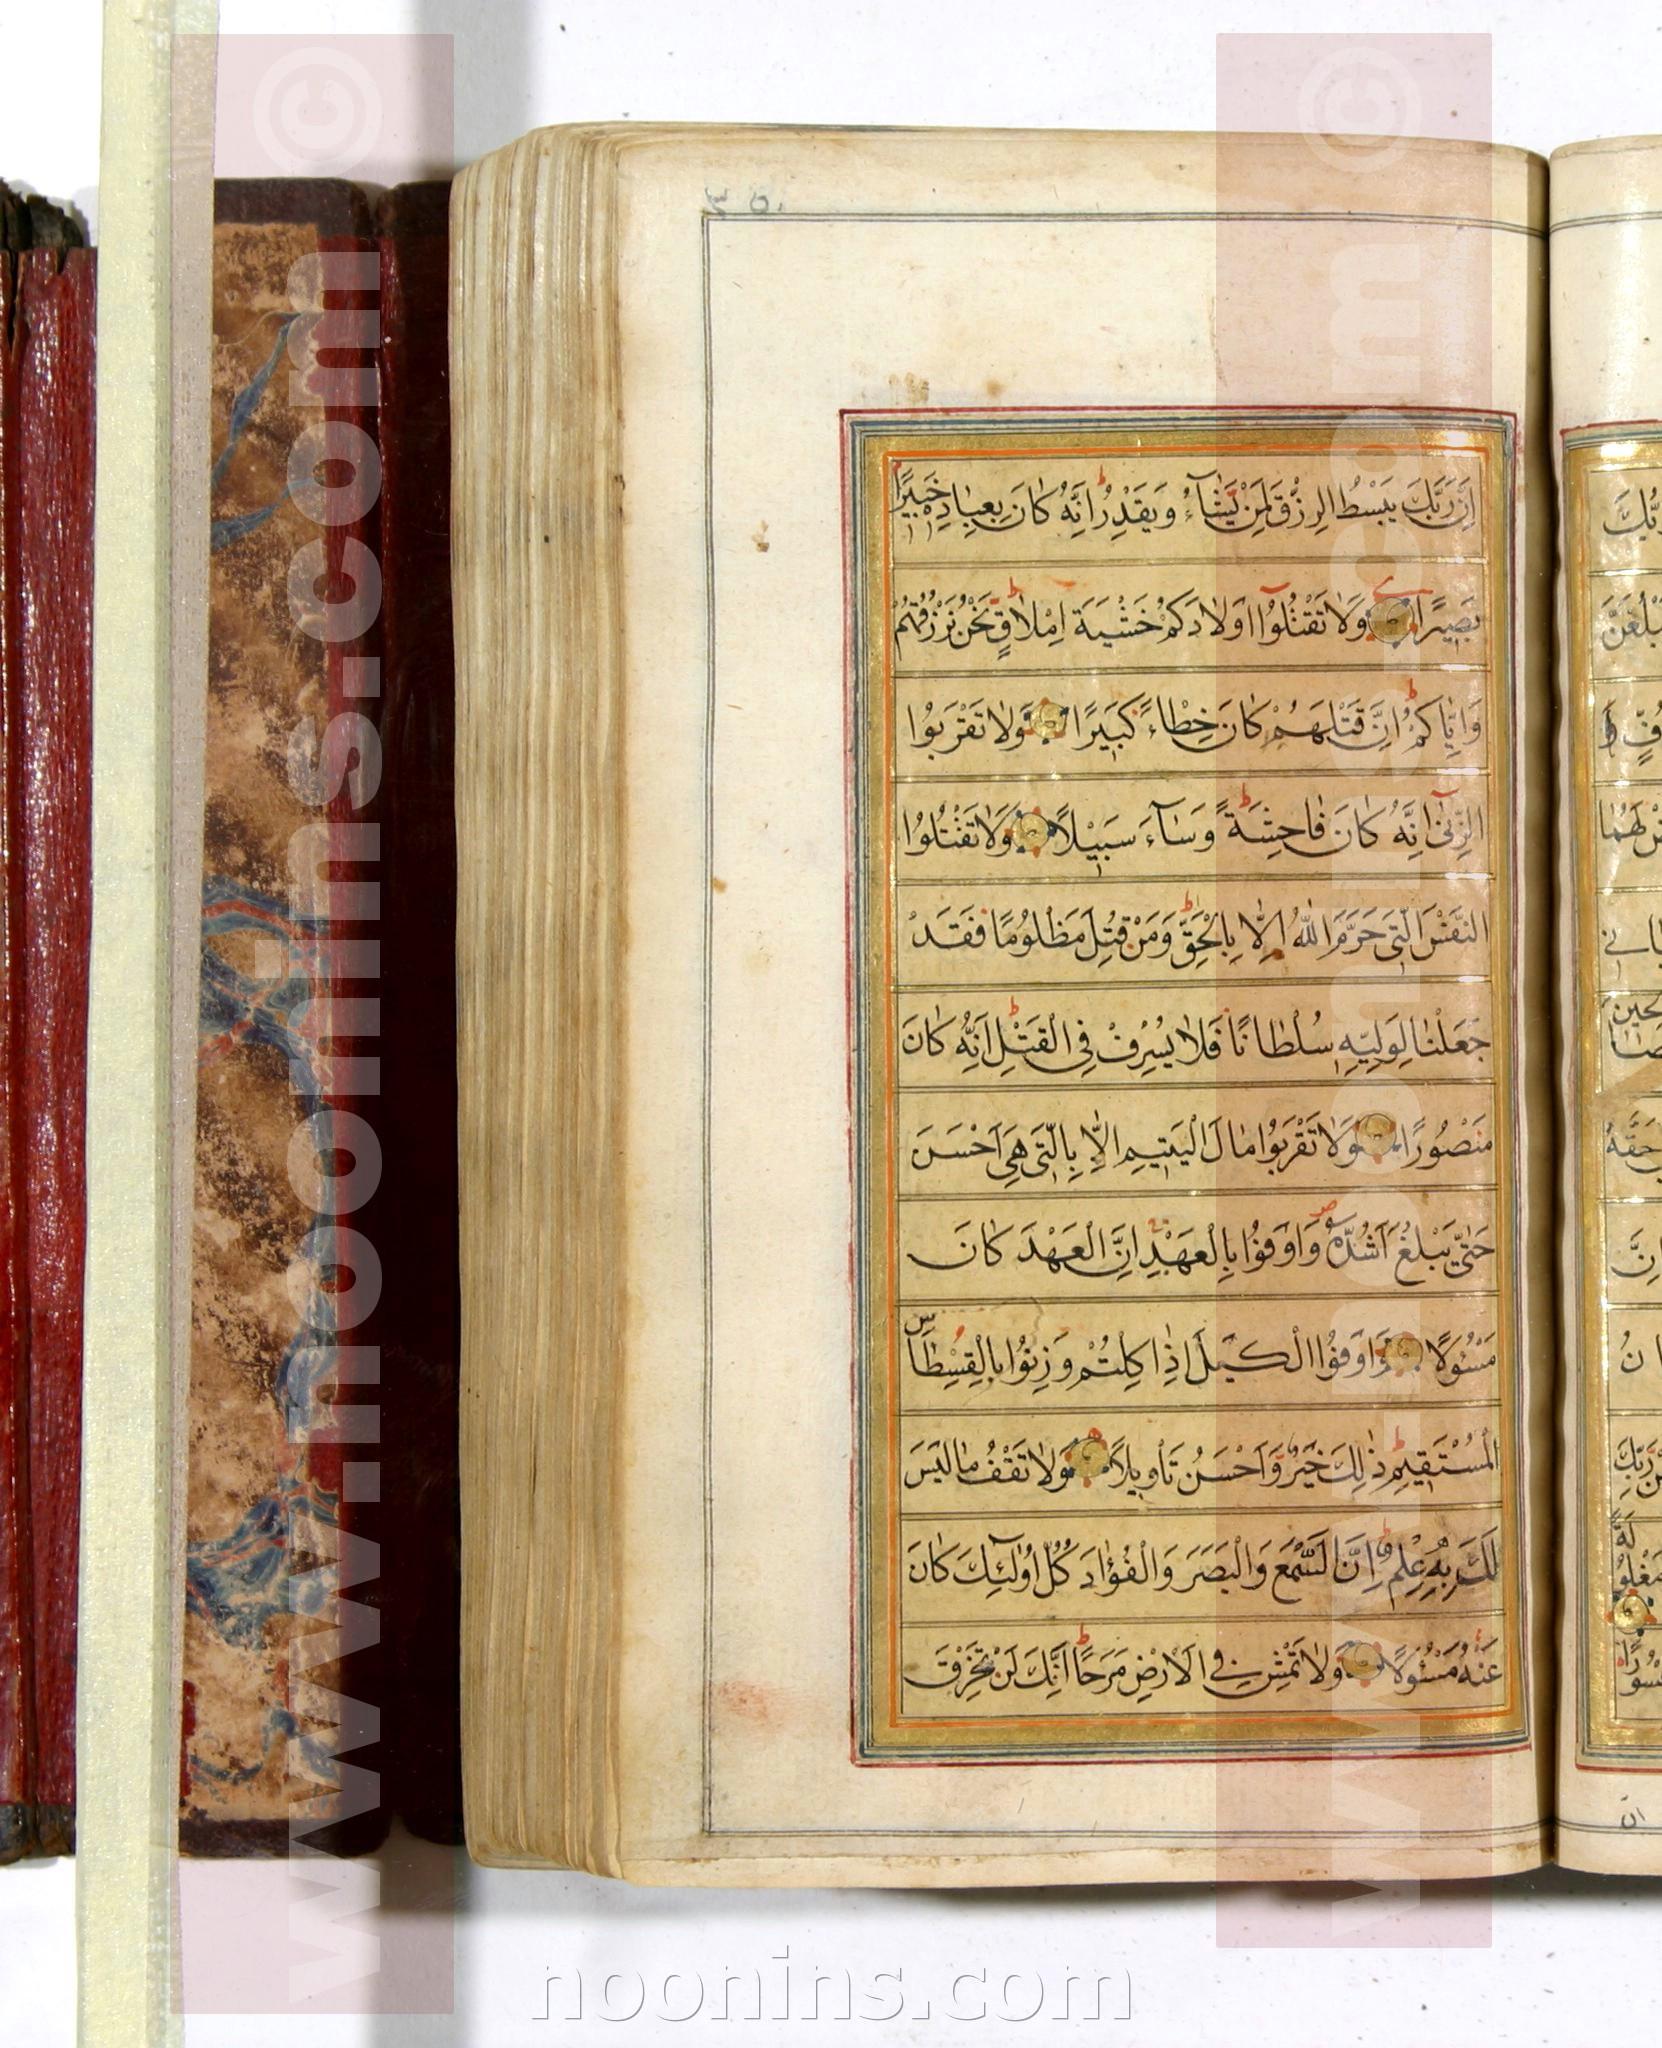 إِنَّ رَبَّكَ يَبْسُطُ الرِّزْقَ لِمَنْ يَشَآءُ وَيَقْدِرُ إِنَّهُ كَانَ بِعِبَادِهِ خَبِيرًا
بَصِيرًا وَلَا تَقْتُلُوا أَوْلَادَكُمْ خَشْيَةَ إِمْلَاقٍ نَحْنُ نَرْزُقُهُمْ
وَإِيَّاكُمْ إِنَّ قَتْلَهُمْ كَانَ خِطْاءً كَبِيرًا وَلَا تَقْرَبُوا
الزِّنَى إِنَّهُ كَانَ فَاحِشَةً وَسَآءَ سَبِيلًا وَلَا تَقْتُلُوا
النَّفْسَ الَّتِي حَرَّمَ اللَّهُ إِلَّا بِالْحَقِّ وَمَنْ قُتِلَ مَظْلُومًا فَقَدْ
جَعَلْنَا لِوَلِيِّهِ سُلْطَانًا فَلَا يُسْرِفْ فِي الْقَتْلِ إِنَّهُ كَانَ
مَنْصُورًا وَلَا تَقْرَبُوا مَالَ الْيَتِيمِ إِلَّا بِالَّتِي هِيَ أَحْسَنُ
حَتَّى يَبْلُغَ أَشُدَّهُ وَأَوْفُوا بِالْعَهْدِ إِنَّ الْعَهْدَ كَانَ
مَسْئُولًا وَأَوْفُوا الْكَيْلَ إِذَا كِلْتُمْ وَزِنُوا بِالْقِسْطَاسِ
الْمُسْتَقِيمِ ذَلِكَ خَيْرٌ وَأَحْسَنُ تَأْوِيلًا وَلَا تَقْفُ مَا لَيْسَ
لَكَ بِهِ عِلْمٌ إِنَّ السَّمْعَ وَالْبَصَرَ وَالْفُؤَادَ كُلُّ أُولَئِكَ كَانَ
عَنْهُ مَسْئُولًا وَلَا تَمْشِ فِي الْأَرْضِ مَرَحًا إِنَّكَ لَنْ تَخْرِقَ
ان
www.noonins.com ©
www.noonins.com ©
noonins.com